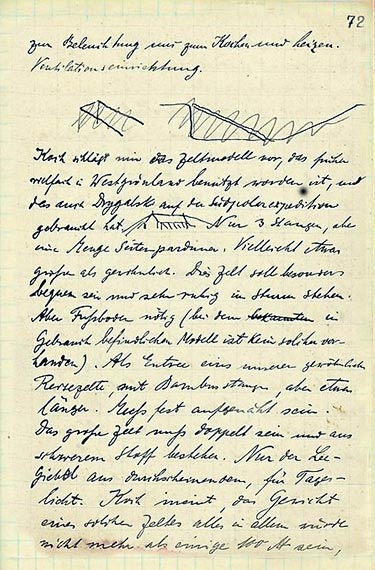 72
zur Beleuchtung nur zum Kochen und heizen.
Ventilationseinrichtung.
Koch schlägt mir das Zeltmodell vor, das früher
vielfach in Westgrönland benutzt worden ist, und
das auch Drygalski auf der Südpolarexpedition
gebraucht hat, Nur 3 Stangen, aber
eine Menge Seitenpardunen. Vielleicht etwas
größer als gewöhnlich. Dies Zelt soll besonders
bequem sein und sehr ruhig im Sturm stehen.
Aber Fußboden nötig (bei dem bekannten in
Gebrauch befindlichen Modell ist kein solcher vor-
handen). Als Entree eines unserer gewöhnlichen
Reisezelte, mit Bambusstangen, aber etwas
länger. Muß fest aufgenäht sein.
Das große Zelt muß doppelt sein und aus
schwerem Stoff bestehen. Nur der
aus durchscheinendem, für Tages-
licht. Koch meint, das Gewicht
eines solchen Zeltes alles in allem würde
nicht mehr als einige 100 ℔ sein,